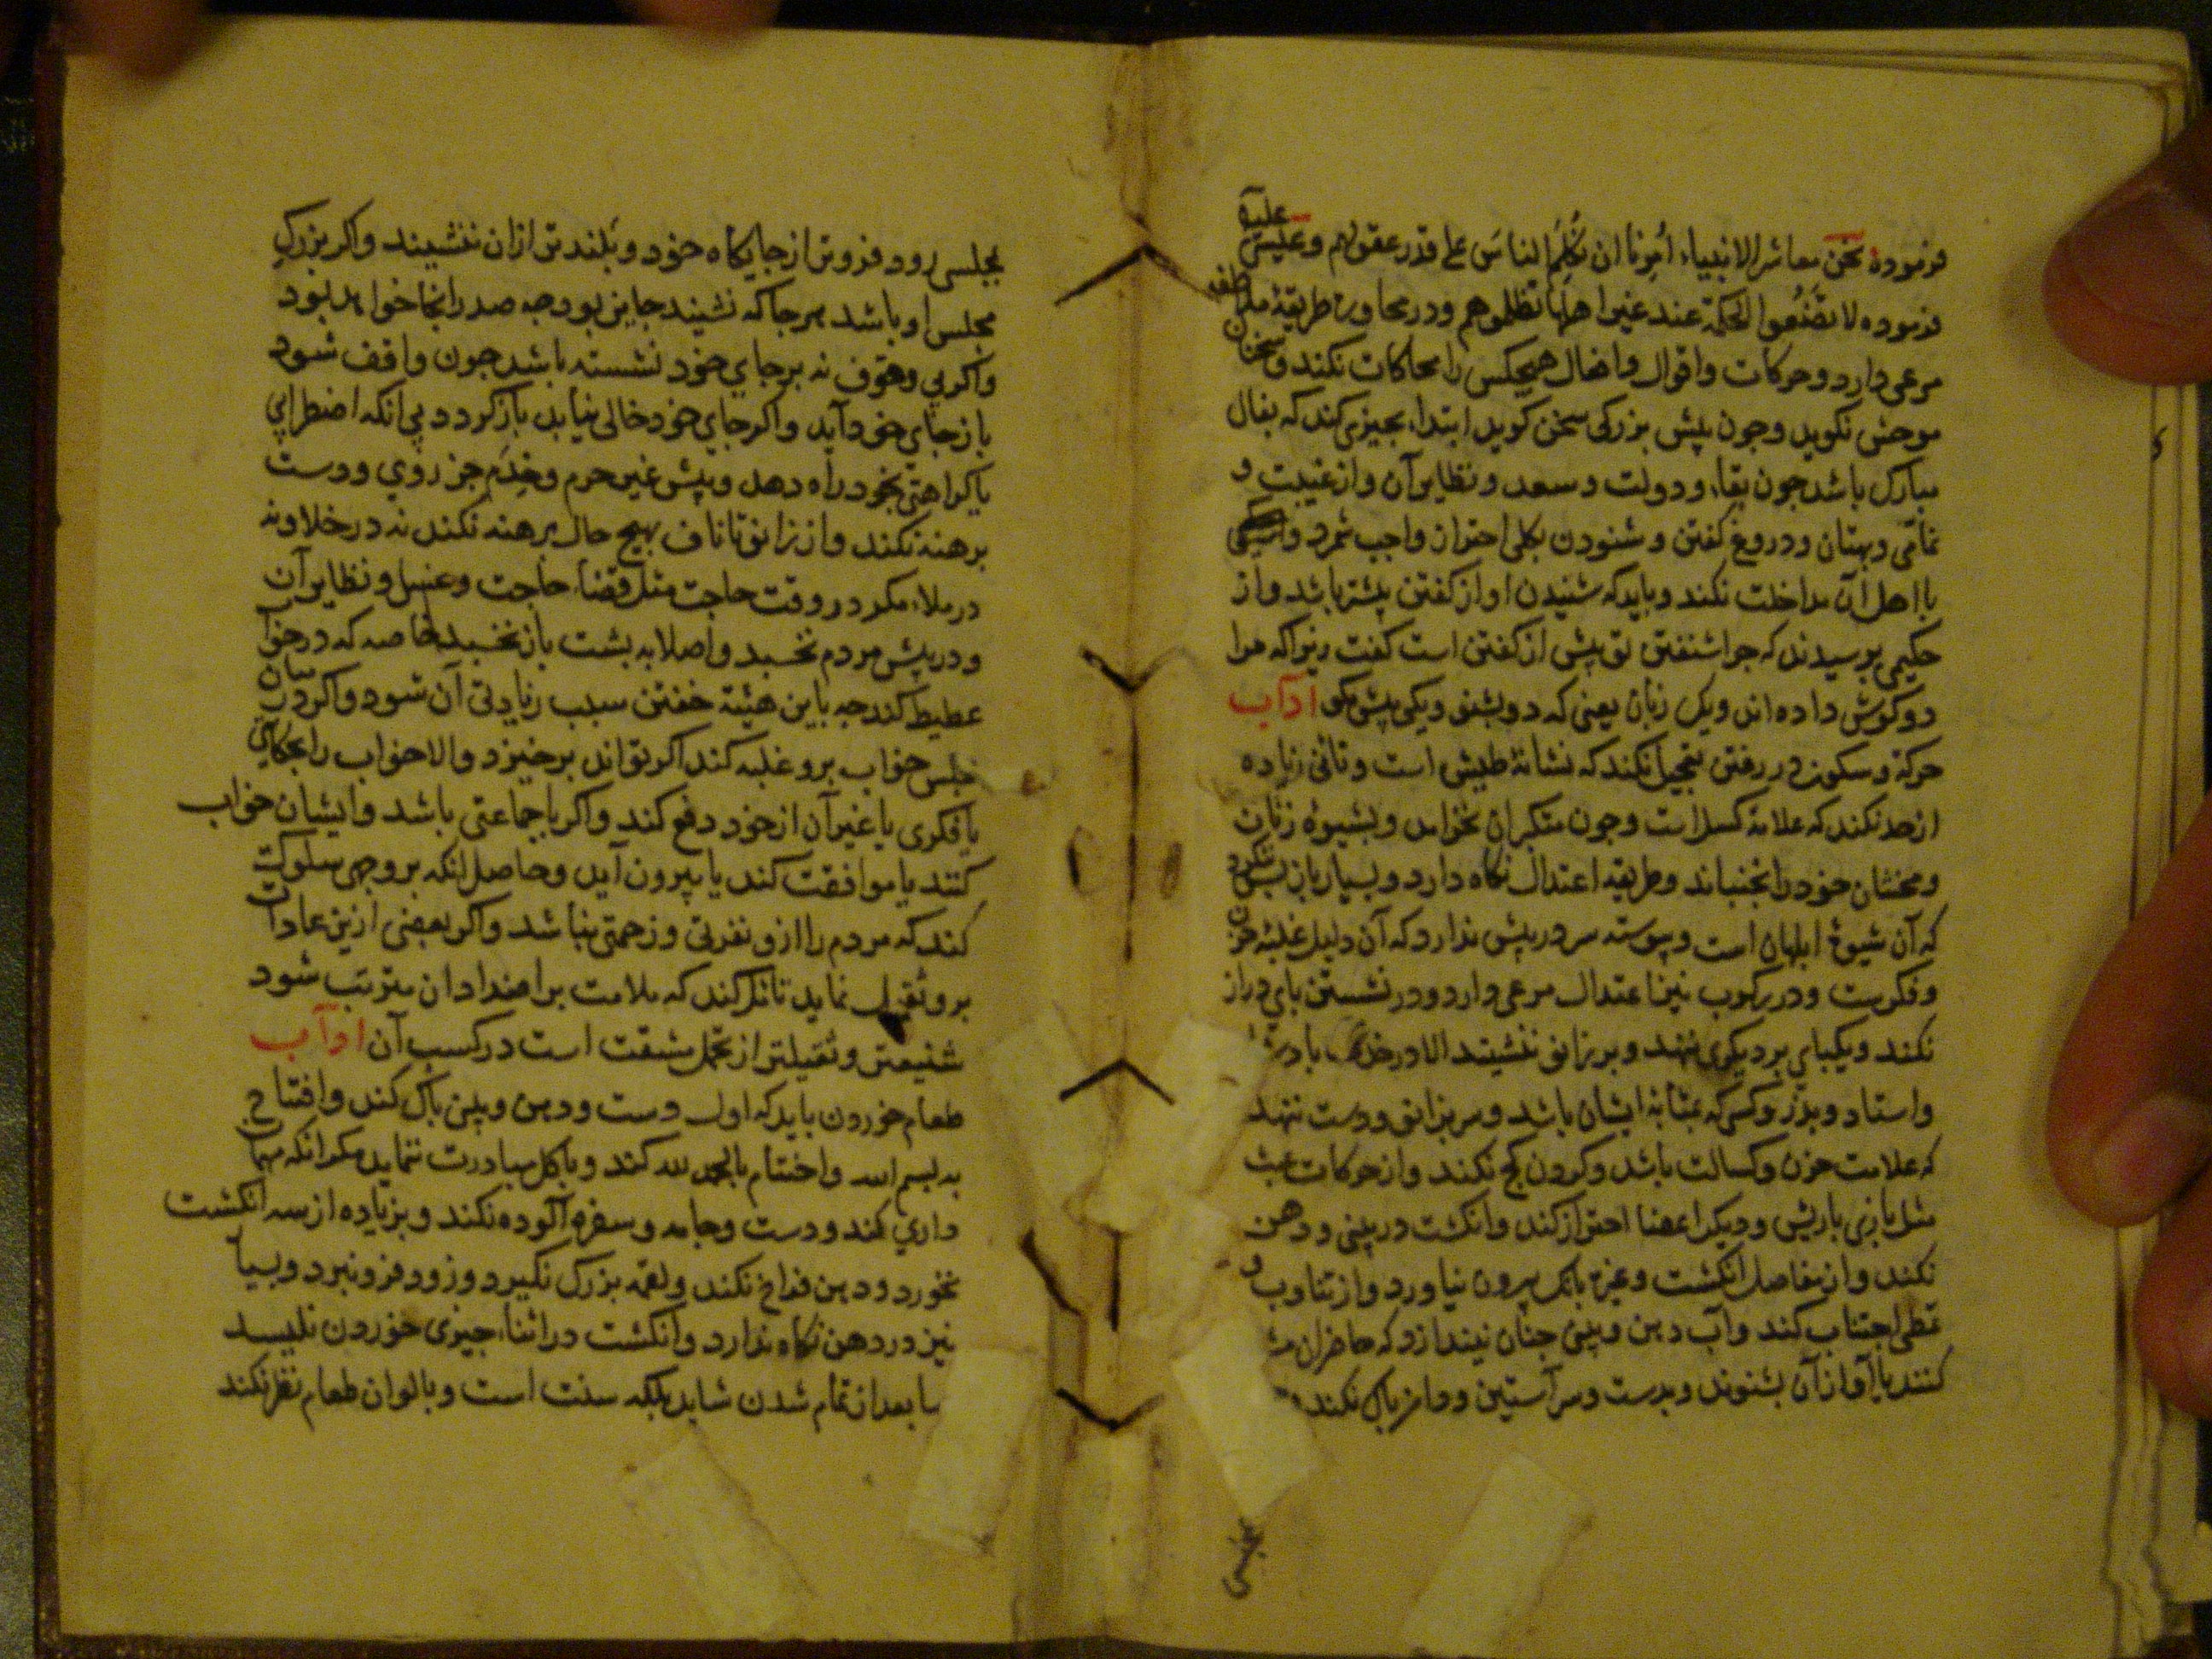 فرموده نحن معاشر الانبیاء اُمِرنا ان نُکلّمَ الناسَ علی قدر عقولهم وعیسی علیه
فرموده لا تضَعُوا الحکمة عند غیر اهلها تظلموهم ودر محاورت طریقۀ ملاطفه
مرعی دارد وحرکات واقوال وافعال هیچکس را محاکات نکند وسخنان
موحش نکوید وجون پیش بزرکی سخن کوید ابتداء بجیزی کند که بفال
مبارک باشد جون بقاء ودولت وسعد ونظایر آن واز غیبت و
نمّامی وبهتان ودروغ کفتن وشنودن بکلی احتراز واجب شمرد
با اهل آن مداخلت نکند وباید که شنیدن او از کفتن بیشتر باشد واز
حکیمی پرسیدند که جرا شنفتن تو بیش از کفتن است کفت زیراکه مرا
دو کوش داده اند ویک زبان یعنی که دو بشنو ویکی بیش مکو اداب
حرکة وسکون در رفتن تعجیل نکند که نشانۀ طیش است وتانی زیاده
از حد نکند که علامة کسل است وجون متکبران نخرامد وبشیوۀ زنان
ومخنثان خود را نجنباند وطریقه اعتدال نکاه دارد وبسیار باز پس ننکرد
که آن شیوۀ ابلهان است وپیوسته سر در پیش ندارد که آن دلیل غلبۀ حزن
وفکرست ودر رکوب نیز اعتدال مرعی دارد ودر نشستن پای دراز
نکند ویکپای بر دیکری ننهد وبر زانو ننشیند الا در خدمت پادشاه
واستاد وپدر وکسی که بمثابۀ ایشان باشد وسر بر زانو ودست ننهد
که علامت حزن وکسالت باشد وکردن کج نکند واز حرکات عبث
مثل بازی با ریش ودیکر اعضا احتراز کند وانکشت در بینی ودهن
نکند واز مفاصل انکشت وغیره بانک بیرون نیاورد واز تثاوب و
تمطی اجتناب کند وآب دهن وبینی جنان نیندازد که حاضران
کنند یا آواز آن بشنوند وبدست وسر آستین ودامن پاک نکند
بمجلسی رود فروتر از جایکاه خود وبلندتر ازان ننشیند واکر بزرک
مجلس او باشد هر جا که نشیند جایز بود جه صدر انجا خواهد بود
واکر بی وقوف نه بر جای خود نشسته باشد جون واقف شود
باز جای خود آید واکر جای خود خالی نیابد باز کردد بی انکه اضطرابی
یا کراهتی بخود راه دهد وپیش غیر حرم وخدم جز روی ودست
برهنه نکند واز زانو تا ناف بهیج حال برهنه نکند نه در خلا ونه
در ملاء مکر در وقت حاجت مثل قضاء حاجت وغسل ونظایر آن
ودر پیش مردم نخسبد واصلا به پشت باز نخسبد خاصه که در خواب
غطیط کند جه باین هیئة خفتن سبب زیادتی آن شود واکر در میان
مجلس خواب برو غلبه کند اکر تواند برخیزد والا خواب را بحکایتی
یا فکری یا غیر آن از خود دفع کند واکر با جماعتی باشد وایشان خواب
کنند یا موافقت کند یا بیرون آید وحاصل انکه بر وجهی سلوک
کند که مردم را ازو نفرتی وزحمتی نباشد واکر بعضی ازین عادات
برو ثقیل نماید تامّل کند که ملامت بر اضداد ان مترتب شود
شنیعتر وثقیلتر از تحمل مشقت است در کسب آن اداب
طعام خوردن باید که اول دست ودهن وبینی پاک کند وافتتاح
به بسم الله واختتام بالحمد لله کند وباکل مبادرت ننماید مکر انکه مهما
داری کند ودست وجامه وسفره آلوده نکند وبزیاده از سه انکشت
نخورد ودهن فراخ نکند ولقمه بزرک نکیرد وزود فرو نبرد وبسیا
نیز در دهن نکاه ندارد وانکشت در اثناء جیزی خوردن نلیسد
اما بعد از تمام شدن شاید بلکه سنت است وبالوان طعام نظر نکند